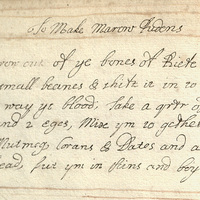 To Make Marow Pudens
row out of ye bones of
small beanes & shitt it in to
way ye blood: Take a qrtr of
and 2 eges, Mixe ym to gether
Nutmegs Corans & Dates and a
ead, put ym in skins and boy